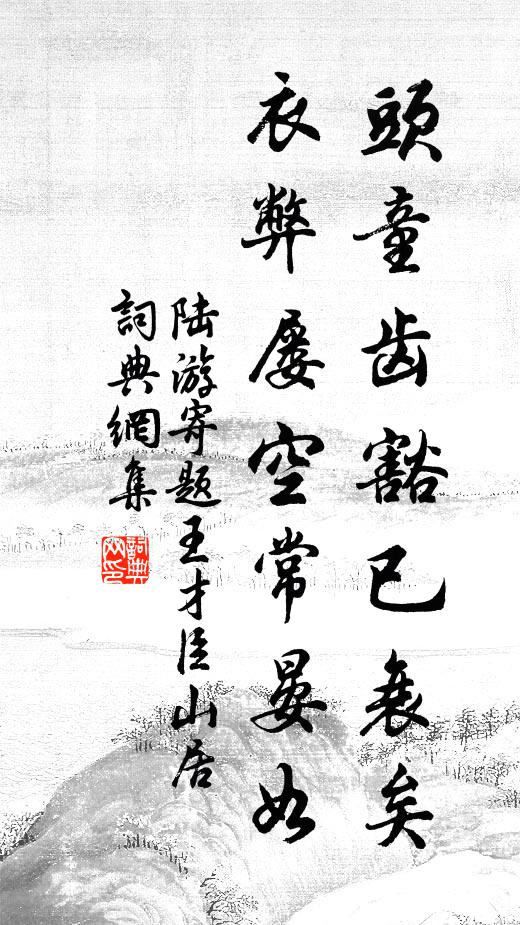 頭童齒豁已衰矣
衣弊屢空常晏如
陸游寄題王才臣山居
詞典網集
詞典網印